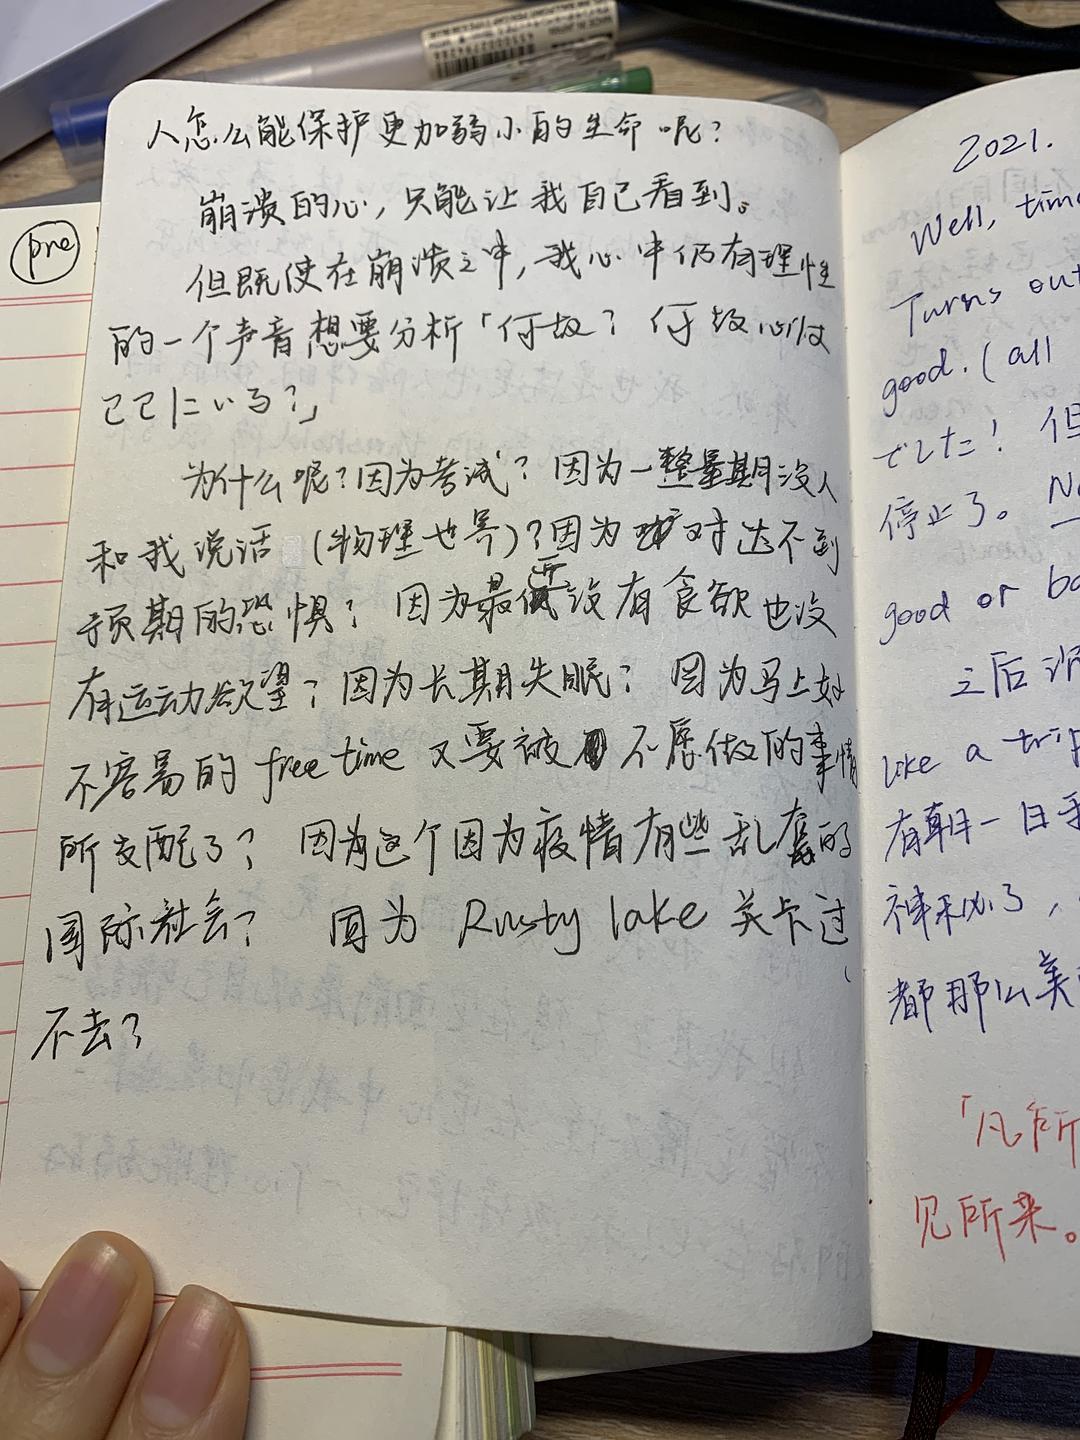 人怎么能保护更加弱小的生命呢？
崩溃的心，只能让我自己看到。
但既使在崩溃之中，我心中仍有理性
的一个声音想要分析「何故？何故心は
ここにいる？」
为什么呢？因为考试？因为一整星期没人
和我说话（物理也算）？因为对达不到
预期的恐惧？因为最近没有食欲也没
有运动欲望？因为长期失眠？因为马上好
不容易的 free time 又要被不愿做的事情
所支配了？因为这个因为疫情有些乱套的
国际社会？ 因为 Rusty lake 关卡过
不去？
pre
2021.
Well, time
Turns out
good. (all
でした！但
停止了。No
good or
之后
like a trip
有朝一日
神秘了，
都那么美
「凡所
见所来。